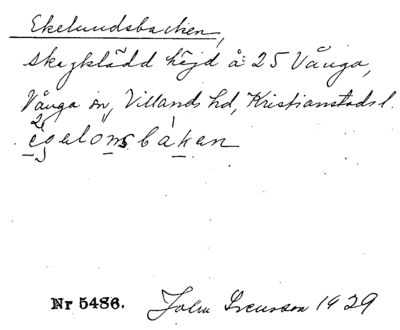 Ekelundsbacken,
skogklädd höjd å 25 Vånga,
Vånga sn, Villands hd, Kristianstads l.
Nr 5486. John Svensson 1929